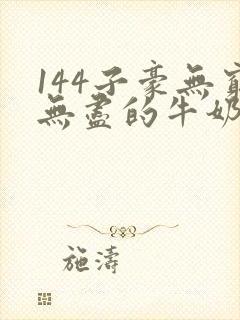 144子豪無窮
無盡的牛奶
施濤